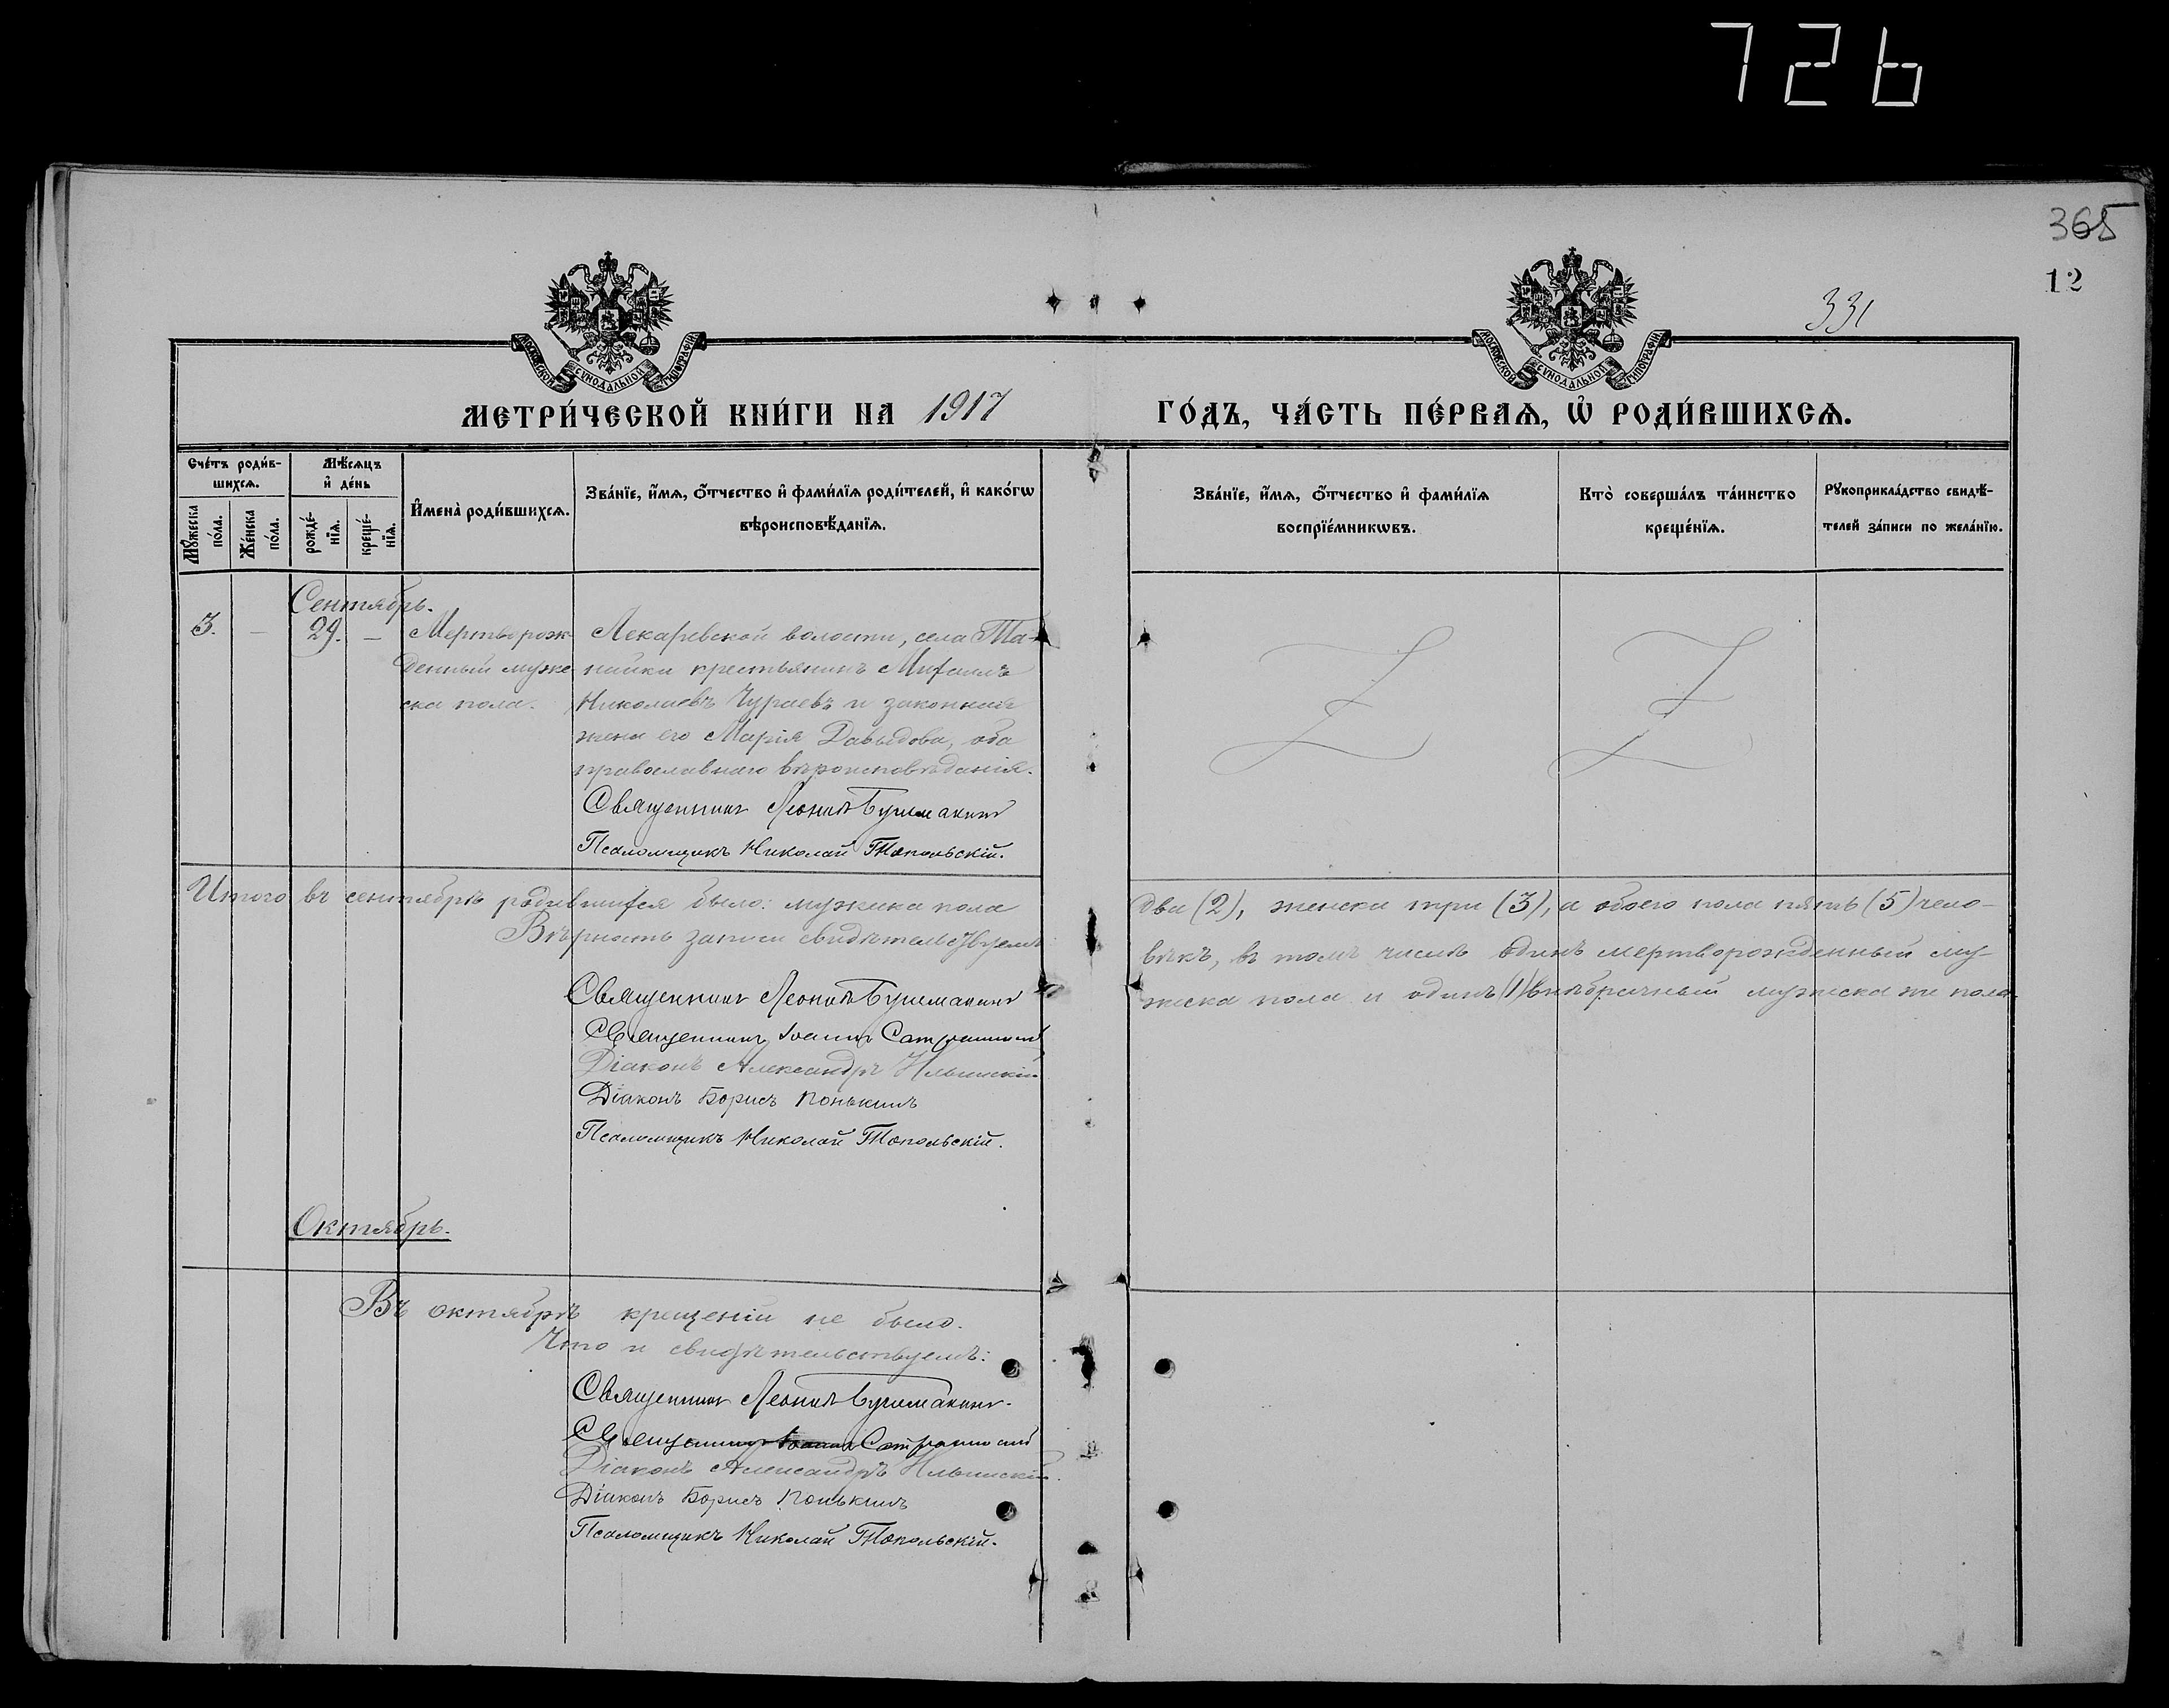 726
365
12
331
МОСКОВСКОЙ СѴНОДАЛЬНОЙ ТИПОГРАФІИ
МОСКОВСКОЙ СѴНОДАЛЬНОЙ ТИПОГРАФІИ
МЕТРИ́ЧЕСКОЙ КНИ́ГИ НА 1917 ГО́ДЪ, ЧА́СТЬ ПЕ́РВАѦ, Ѡ҆ РОДИ́ВШИХСѦ.
Сче́тъ роди́в-
шихсѧ.
Мꙋ́жеска
по́ла.
Же́нска
по́ла.
Мѣ́сѧцъ
и҆ де́нь
рожде́-
нїѧ.
креще́-
нїѧ.
И҆мена̀ роди́вшихсѧ.
Зва́нїе, и҆́мѧ, ѻ҆́тчество и҆ фами́лїѧ роди́телей, и҆ како́гѡ
вѣроисповѣ́данїѧ.
Зва́нїе, и҆́мѧ, ѻ҆́тчество и҆ фами́лїѧ
воспрїе́мникѡвъ.
Кто̀ соверша́лъ та́инство
креще́нїѧ.
Рꙋкоприкла́дство свидѣ́-
телей за́писи по жела́нїю.
Сентябрь.
3. — 29. — Мертворож
денный муже
ска пола.
Лекаревской волости, села Та-
найки крестьянинъ Михаилъ
Николаевъ Чураевъ и законная
жена его Марія Давыдова, оба
православнаго вѣроисповѣданія.
Священникъ Леонидъ
Псаломщикъ Николай Топольскій.
Итого въ сентябрѣ родившихся было: мужска пола два (2), женска три (3), а обоего пола пять (5) чело-
вѣкъ, въ томъ числѣ одинъ мертворожденный му-
жеска пола и одинъ (1) внѣбрачный мужеска же пола.
Вѣрность записи свидѣтельствуемъ
Священникъ Леонидъ
Священникъ Іоаннъ
Діаконъ Александръ Ильинскій
Діаконъ Борисъ Понькинъ
Псаломщикъ Николай Топольскій.
Октябрь.
Въ октябрѣ крещеній не было.
Что и свидѣтельствуемъ:
Священникъ Леонидъ
Священникъ Іоаннъ
Діаконъ Александръ Ильинскій.
Діаконъ Борисъ Понькинъ
Псаломщикъ Николай Топольскій.